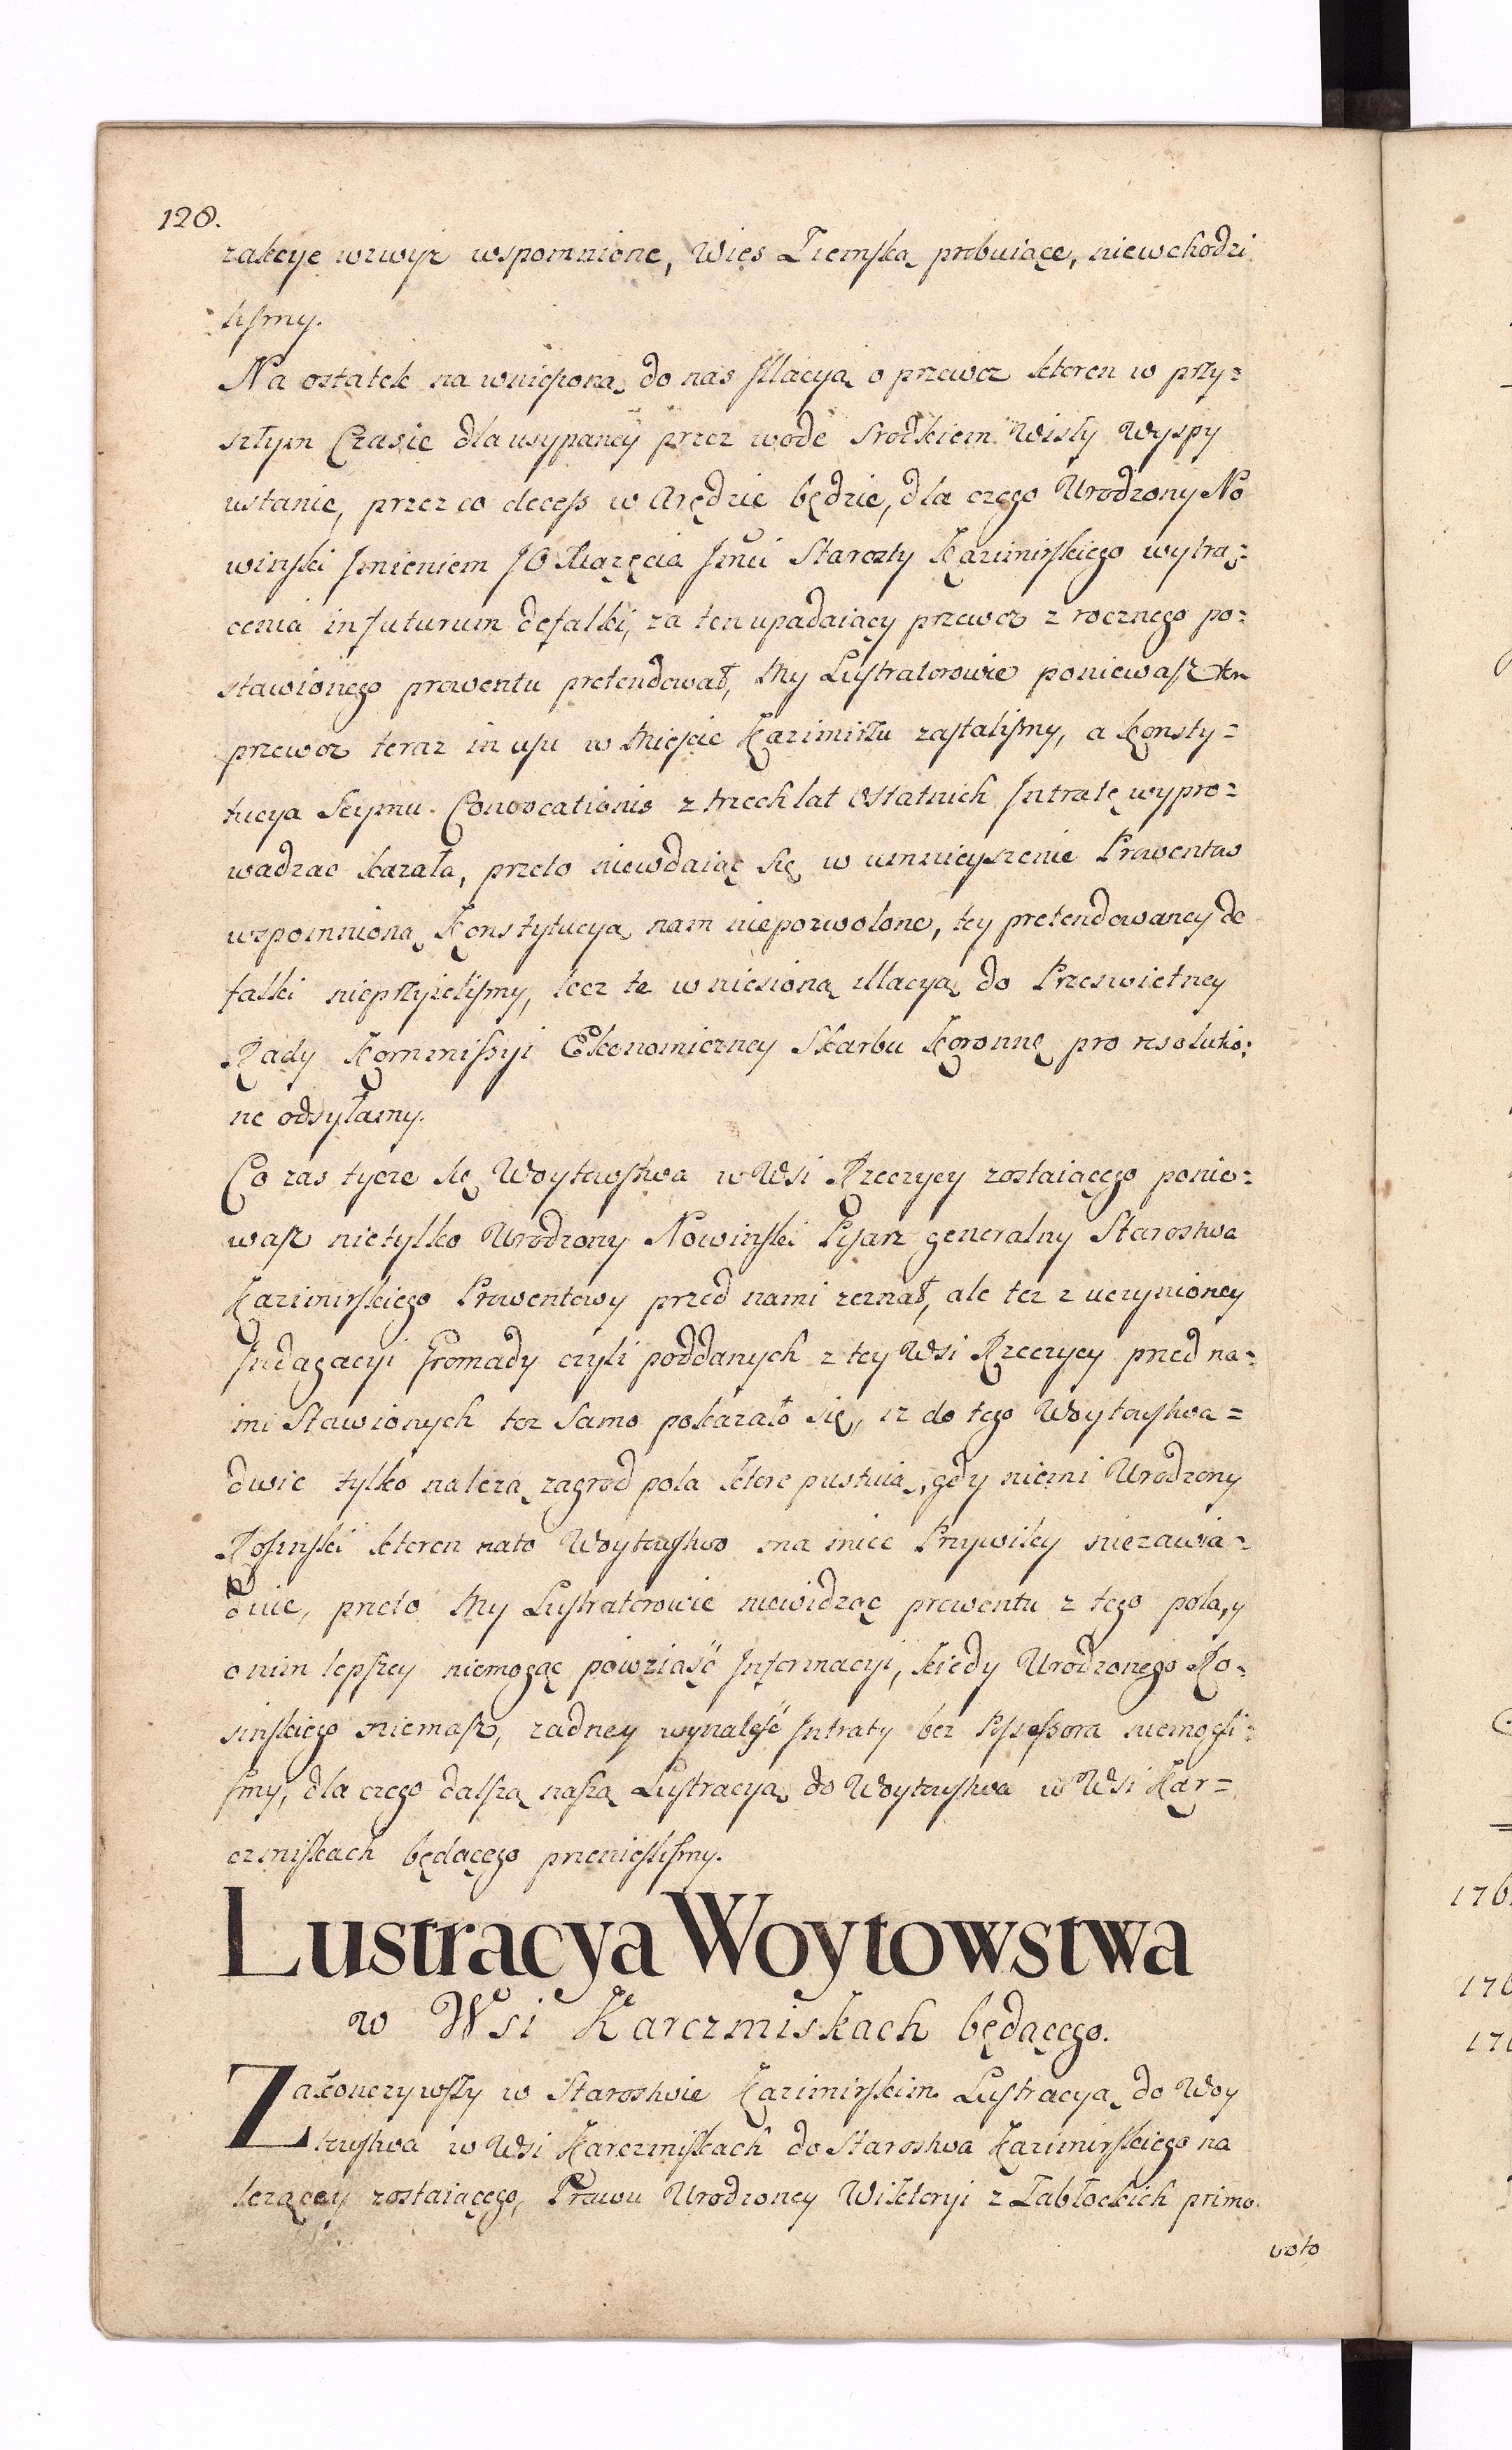 128.
zakcye wzwyz wspomnione, Wies Ziemską probuiące, niewchodzi
lismy.
Na ostatek na wniesioną do nas Illacyą o przewoz ktoren w przy=
szłym Czasie dla usypaney przez wodę srodkiem Wisły Wyspy
ustanie, przez co decess w Arędzie będzie, dla czego Urodzony No
winski Imieniem JO Xiązęcia Jmci Starosty Kazimirskiego wytrą=
cenia in futurum defalki, za ten upadaiący przewoz z rocznego po=
stawionego prowentu pretendował, My Lustratorowie poniewasz ten
przewoz teraz in usu w Miescie Kazimirzu zastalismy, a Konsty=
tucya Seymu Convocationis z trzech lat Ostatnich Intratę wypro=
wadzac kazała, przeto niewdaiąc się w umnieyszenie Prowentow
wzpomnioną Konstytucyą nam niepozwolone, tey pretendowaney de
falki nieprzyielismy, lecz te wniesioną illacyą do Przeswietney
Rady Kommissyi Ekonomiczney Skarbu Koronne pro resolutio=
ne odsyłamy.
Co zas tycze się Woytowstwa w Wsi Rzeczycy zostaiącego ponie=
wasz nietylko Urodzony Nowinski Pisarz generalny Starostwa
Kazimirskiego Prowentowy przed nami zeznał, ale tez z uczynioney
Indagacyi Gromady czyli poddanych z tey Wsi Rzeczycy przed na=
mi Stawionych toz Samo pokazało się, iz do tego Woytowstwa=
dwie tylko nalezą zagrod pola ktore pustuią, gdy niemi Urodzony
Rosinski ktoren nato Woytowstwo ma miec Przywiley niezawia=
duie, przeto My Lustratorowie niewidząc prowentu z tego pola, y
o nim lepszey niemogąc powziąść Informacyi, kiedy Urodzonego Ro=
sinskiego niemasz, zadney wynaleść Intraty bez Possessora niemogli=
smy, dla czego dalszą naszą Lustracyą do Woytowstwa w Wsi Kar=
czmiskach będącego przenieslismy.
Lustracya Woytowstwa
w Wsi Karczmiskach będącego.
Zakonczywszy w Starostwie Kazimirskim Lustracyą do Woy
towstwa w Wsi Karczmiskach do Starostwa Kazimirskiego na
lezącey zostaiącego, Prawu Urodzoney Wiktoryi z Zabłockich primo
voto